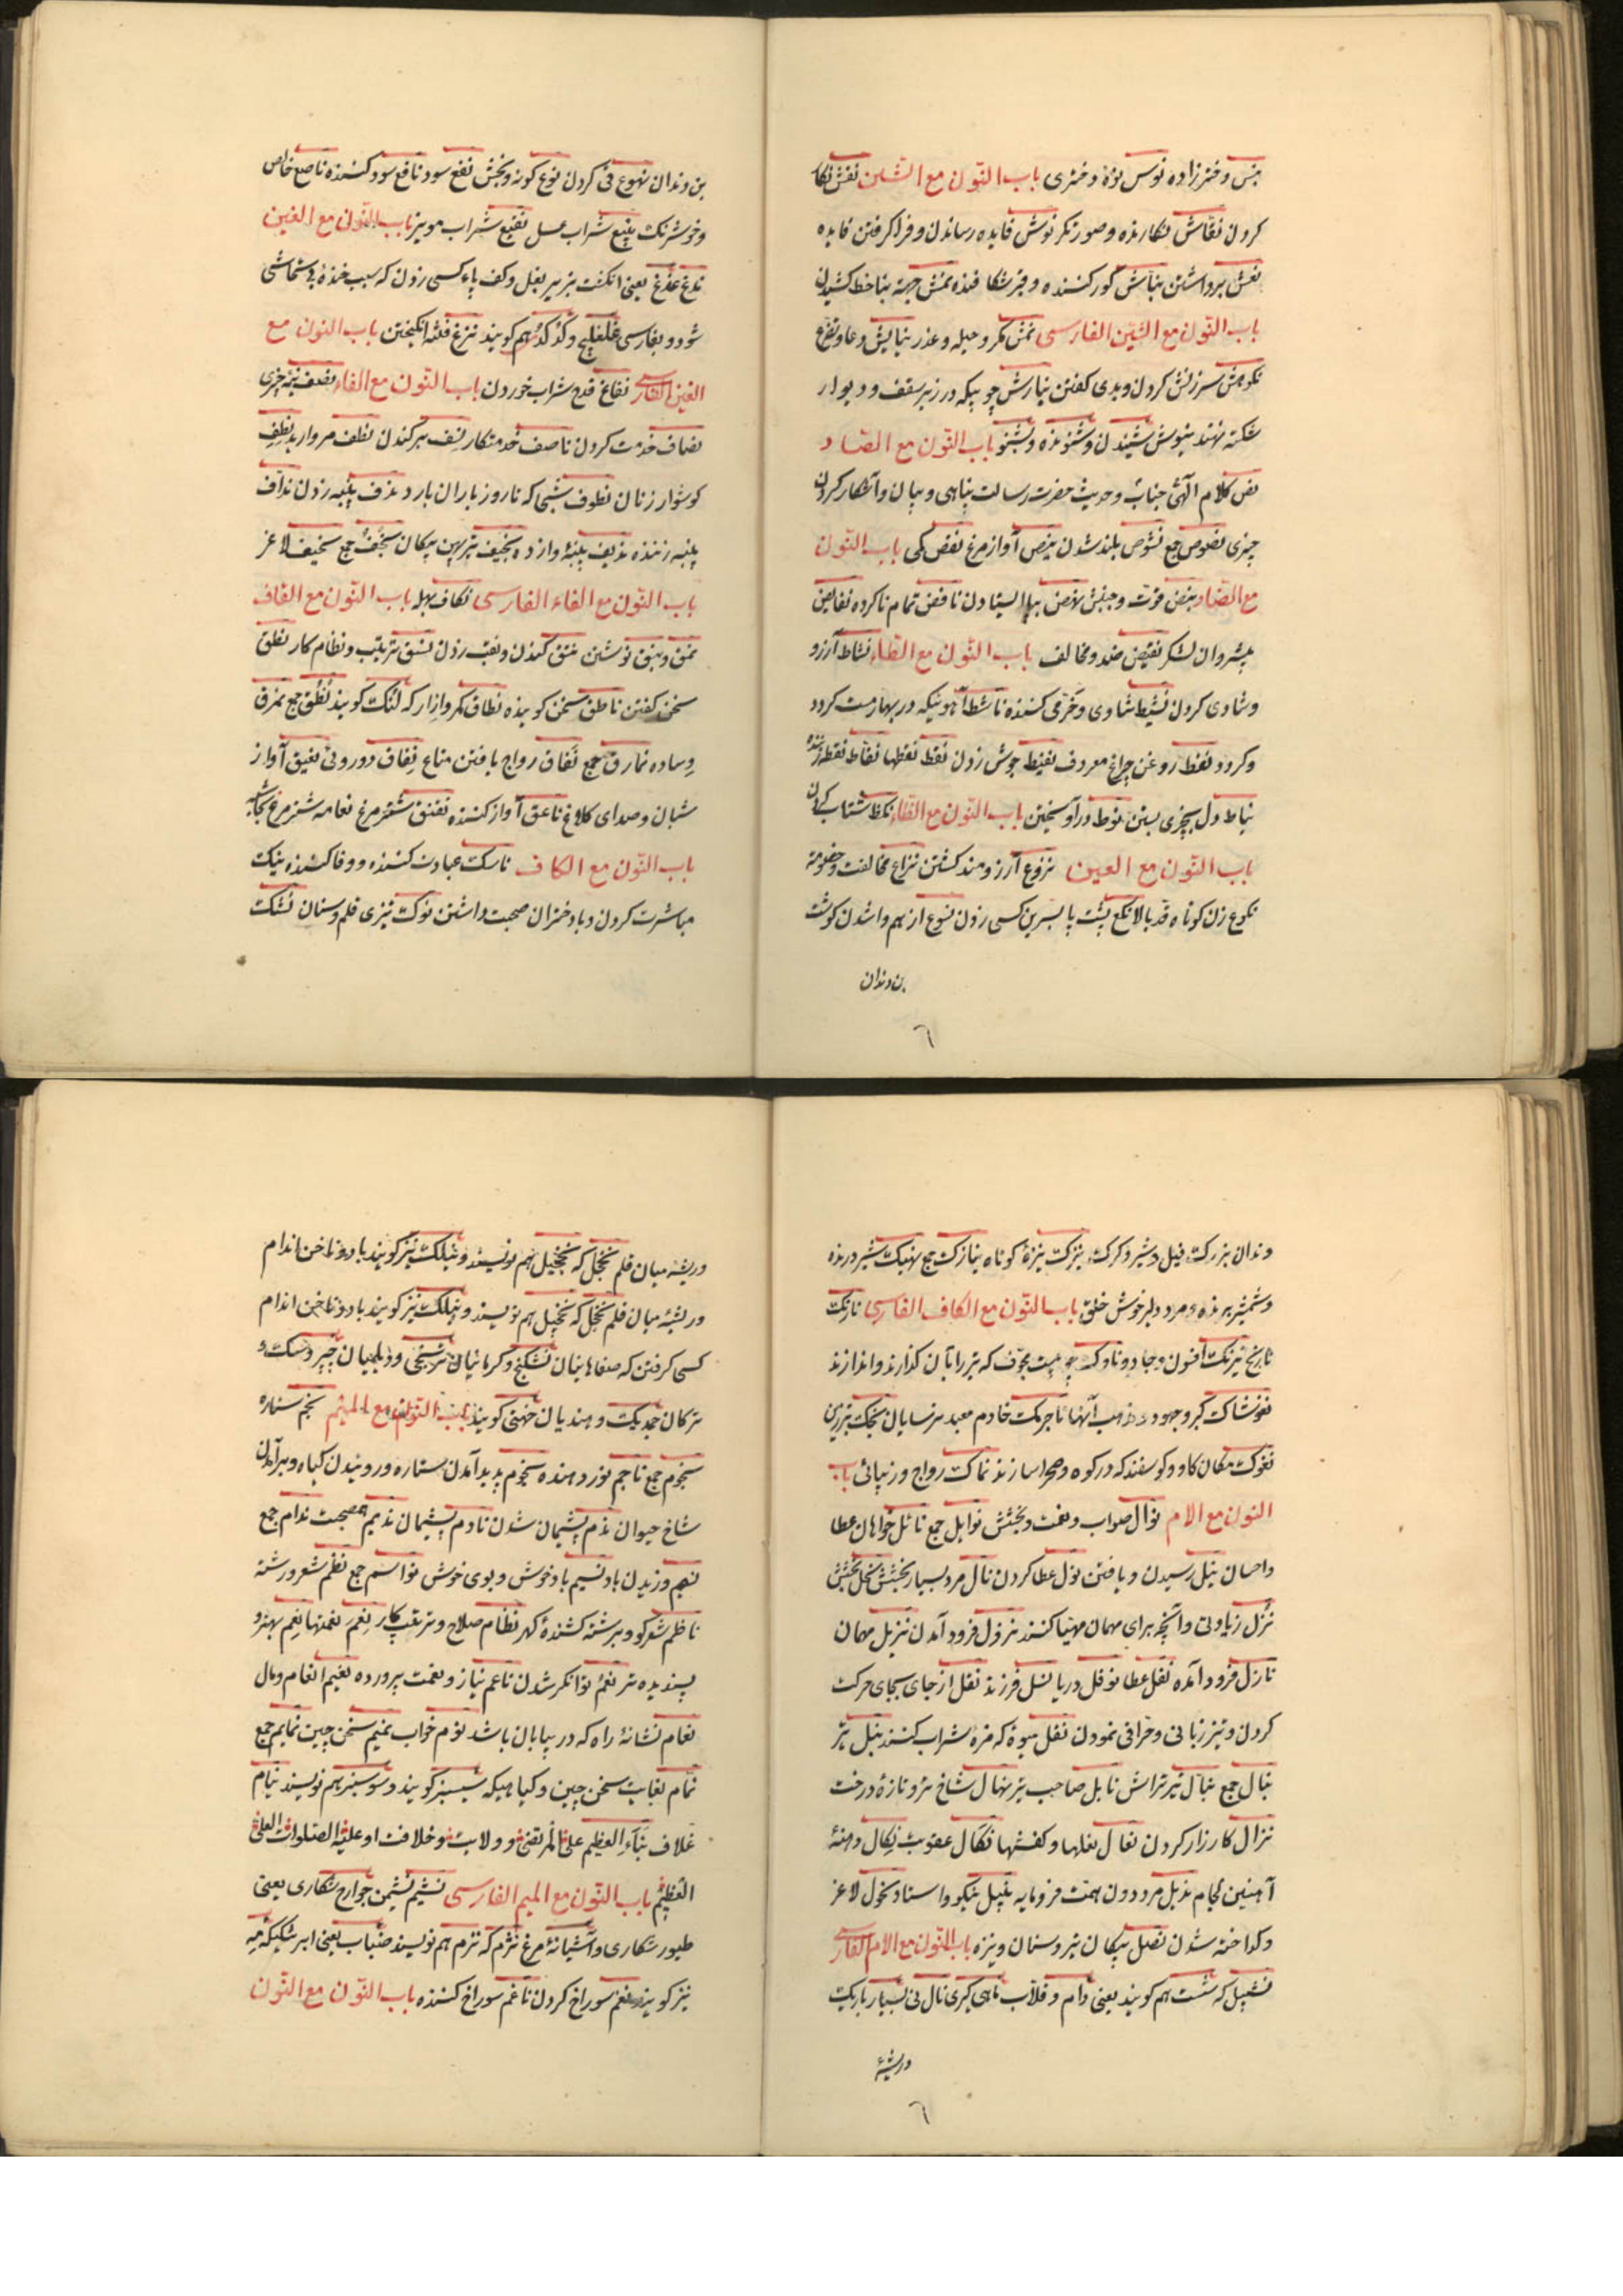 بنس دخترزاده نوس نوهٔ دختری باب النّون مع الشین نقش نگار
کردن نقّاش نگارنده و صورتگر نوش فایده رساندن و فرا گرفتن فایده
نعش برداشتن نبّاش گور کننده و قبر شکافنده نمش جبهٔ بناخط کشیدن
باب النّون مع الشین الفارسی نمش مکر و حیله و عذر نیایش دعا و تضرع
نکوهش سرزنش کردن و بدی گفتن نیارش چوبیکه در زیر سقف و دیوار
شکسته نهند نیوش شنیدن و شنونده و بشنو باب النّون مع الصاد
نص کلام الٓهی جناب و حدیث حضرت رسالت پناهی و بیان و آشکار کردن
چیزی نصوص جمع نشوص بلند شدن نبص آواز مرغ نقص کمی باب النّون
مع الضاد نبض قوّت و جنبش نهض بپا ایستادن ناقض تمام ناکرده نفایض
پیشروان لشکر نقیض ضد و مخالف باب النّون مع الطاء نشاط آرزو
و شادی کردن نشیط شادی و خرّمی کننده ناشط آهوئیکه در بهار مست گردد
و گردد نفط روغن چراغ معروف نفیط جوش زدن نقط نقطها نقّاط نقطه زننده
نیاط دل بچیزی بستن نوط درآویختن باب النّون مع الظاء نکظ شتاب کردن
باب النّون مع العین نزوع آرزومند گشتن نزاع مخالفت و خصومة
نکوع زن کوتاه قد بالا نکع پشت پا بسرین کسی زدن نسوع از هم واشدن گوشت
بن دندان
٦
بن دندان نهوع قی کردن نوع گونه و بخش نفع سود نافع سود کننده ناصع خالص
و خوشرنگ نبیع شراب عسل نقیع شراب مویز باب النّون مع الغین
نغغ غدغ یعنی انگشت بزیر بغل و کف پاء کسی زدن که سبب خنده
شود و بفارسی غلغلیج و گدگد هم گویند نزغ فتنه انگیختن باب النون مع
الغین الفارسی نفاغ قدح شراب خوردن باب النّون مع الفاء نصف نیمهٔ چیزی
نصاف خدمت کردن ناصف خدمتکار نسف برکندن نطف مروارید نطف
گوشوار زنان نطوف شبی که تا روز باران بارد ندف پنبه زدن ندّاف
پنبه زننده ندیف پنبهٔ وازده نجیف تیر پهن پیکان نجف جمع نحیف لاغر
باب النّون مع الفاء الفارسی نکاف بهله باب النّون مع القاف
نمق و نبق نوشتن نتق کندن و نقب زدن نسق ترتیب و نظام کار نطق
سخن گفتن ناطق سخن گوینده نطاق کمر و ازار که لنگ گویند نطق جمع نمرق
وساده نمارق جمع نَفاق رواج یافتن متاع نِفاق دوروئی نغیق آواز
شبان و صدای کلاغ ناعق آواز کننده نقنق شتر مرغ نعامه شتر مرغ
باب النّون مع الکاف ناسک عبادت کننده و وفا کننده نیک
مباشرت کردن و با دختران صحبت داشتن نوک تیزی قلم و سنان نشک
دندان بزرگ فیل و شیر و گرگ نیزک نیزهٔ کوتاه نیازک جمع نهیک شیر درنده
و شمشیر برنده و مرد دلیر خوش خلق باب النّون مع الکاف الفارسی نارنگ
نارنج نیرنگ افسون و جادو ناوک چوبیست مجوّف که تیر را بآن گذارند و اندازند
نغوشاک گبر و جهود و مذهب آنها ناجرمک خادم معبد ترسایان نجک تبرزین
نغوک مکان گاو و گوسفند که در کوه و صحرا سازند نماک رواج و زیبائی باب
النون مع الام نوال صواب و نعمت و بخشش نوایل جمع نائل خواهان عطا
و احسان نیل رسیدن و یافتن نول عطا کردن نال مرد بسیار بخشش نحل بخشش
نزل زیادتی و آنچه برای مهمان مهیّا کنند نزول فرود آمدن نزیل مهمان
نازل فرود آمده نفل عطا نوفل دریا نسل فرزند نقل از جای بجای حرکت
کردن و تیز زبانی و حرّافی نمودن نقل میوهٔ که مزهٔ شراب کنند نبل تیر
نبال جمع نبّال تیر تراش نابل صاحب تیر نهال شاخ تر و تازهٔ درخت
نزال کارزار کردن نعال نعلها و کفشها نکال عقوبت نکال دهنهٔ
آهنین لجام نذیل مرد دون همّت فرومایه نبیل نیکو و استاد نحول لاغر
و گداخته شدن نصل پیکان تیر و سنان و نیزه باب النّون مع الام الفارسی
نشپیل که شست هم گویند یعنی دام و قلّاب ماهی گیری نال نی بسیار باریک
و ریشهٔ
٦
و ریشه میان قلم نخجل که نخجیل هم نویسند و نیلک نیز گویند با دو ناخن اندام
و ریشهٔ میان قلم نخجل که نخجیل هم نویسند و نیلک نیز گویند با دو ناخن اندام
کسی گرفتن که صفاهانیان نشکنج و کرمانیان و دیلمیان و
ترکان جمدیک و هندیان گویند باب النّون مع المیم نجم ستاره
نجوم جمع ناجم نور دهنده نجوم پدید آمدن ستاره و روئیدن گیاه و برآمدن
شاخ حیوان ندم پشیمان شدن نادم پشیمان ندیم همصحبت ندام جمع
نسم وزیدن باد نسیم باد خوش و بوی خوش نواسم جمع نظم شعر و رشته
ناظم شعر گو و برشته کشندهٔ گهر نظام صلاح و ترتیب کار نغم نغمتها نعم بهتر و
پسندیده تر نعم توانگر شدن ناعم نیاز و نعمت پرورده نعیم انعام و مال
نعام نشانهٔ راه که در بیابان باشد نوم خواب نمیم سخن چین نمایم جمع
نمّام بغایت سخن چین و گیاهیکه سیسنبر گویند و سوسنبر هم نویسند نیام
غلاف نباء العظیم علی المرتضی و ولایت و خلافت او علیه الصّلوات العلیّ
العظیم باب النّون مع المیم الفارسی نشیم نشیمن جوارح شکاری یعنی
طیور شکاری و آشیانهٔ مرغ نژم که نزم هم نویسند ضباب یعنی ابر
نیز گویند نغم سوراخ کردن ناغم سوراخ کننده باب النّون مع النّون